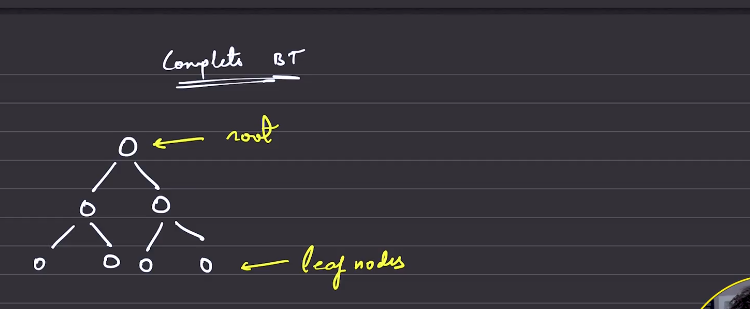 Complete BT
root
leaf nodes